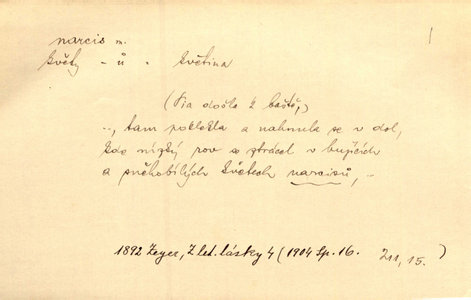 narcis m.
květy - ů - květina
(Pia došla k baště,)
.., tam poklekla a nahnula se v dol,
kde nízký rov se ztrácel v bujících
a sněhobílých květech narcisů, ..
1892 Zeyer, Z let. lásky 4 (1904 Sp. 16. 211, 15.)
|